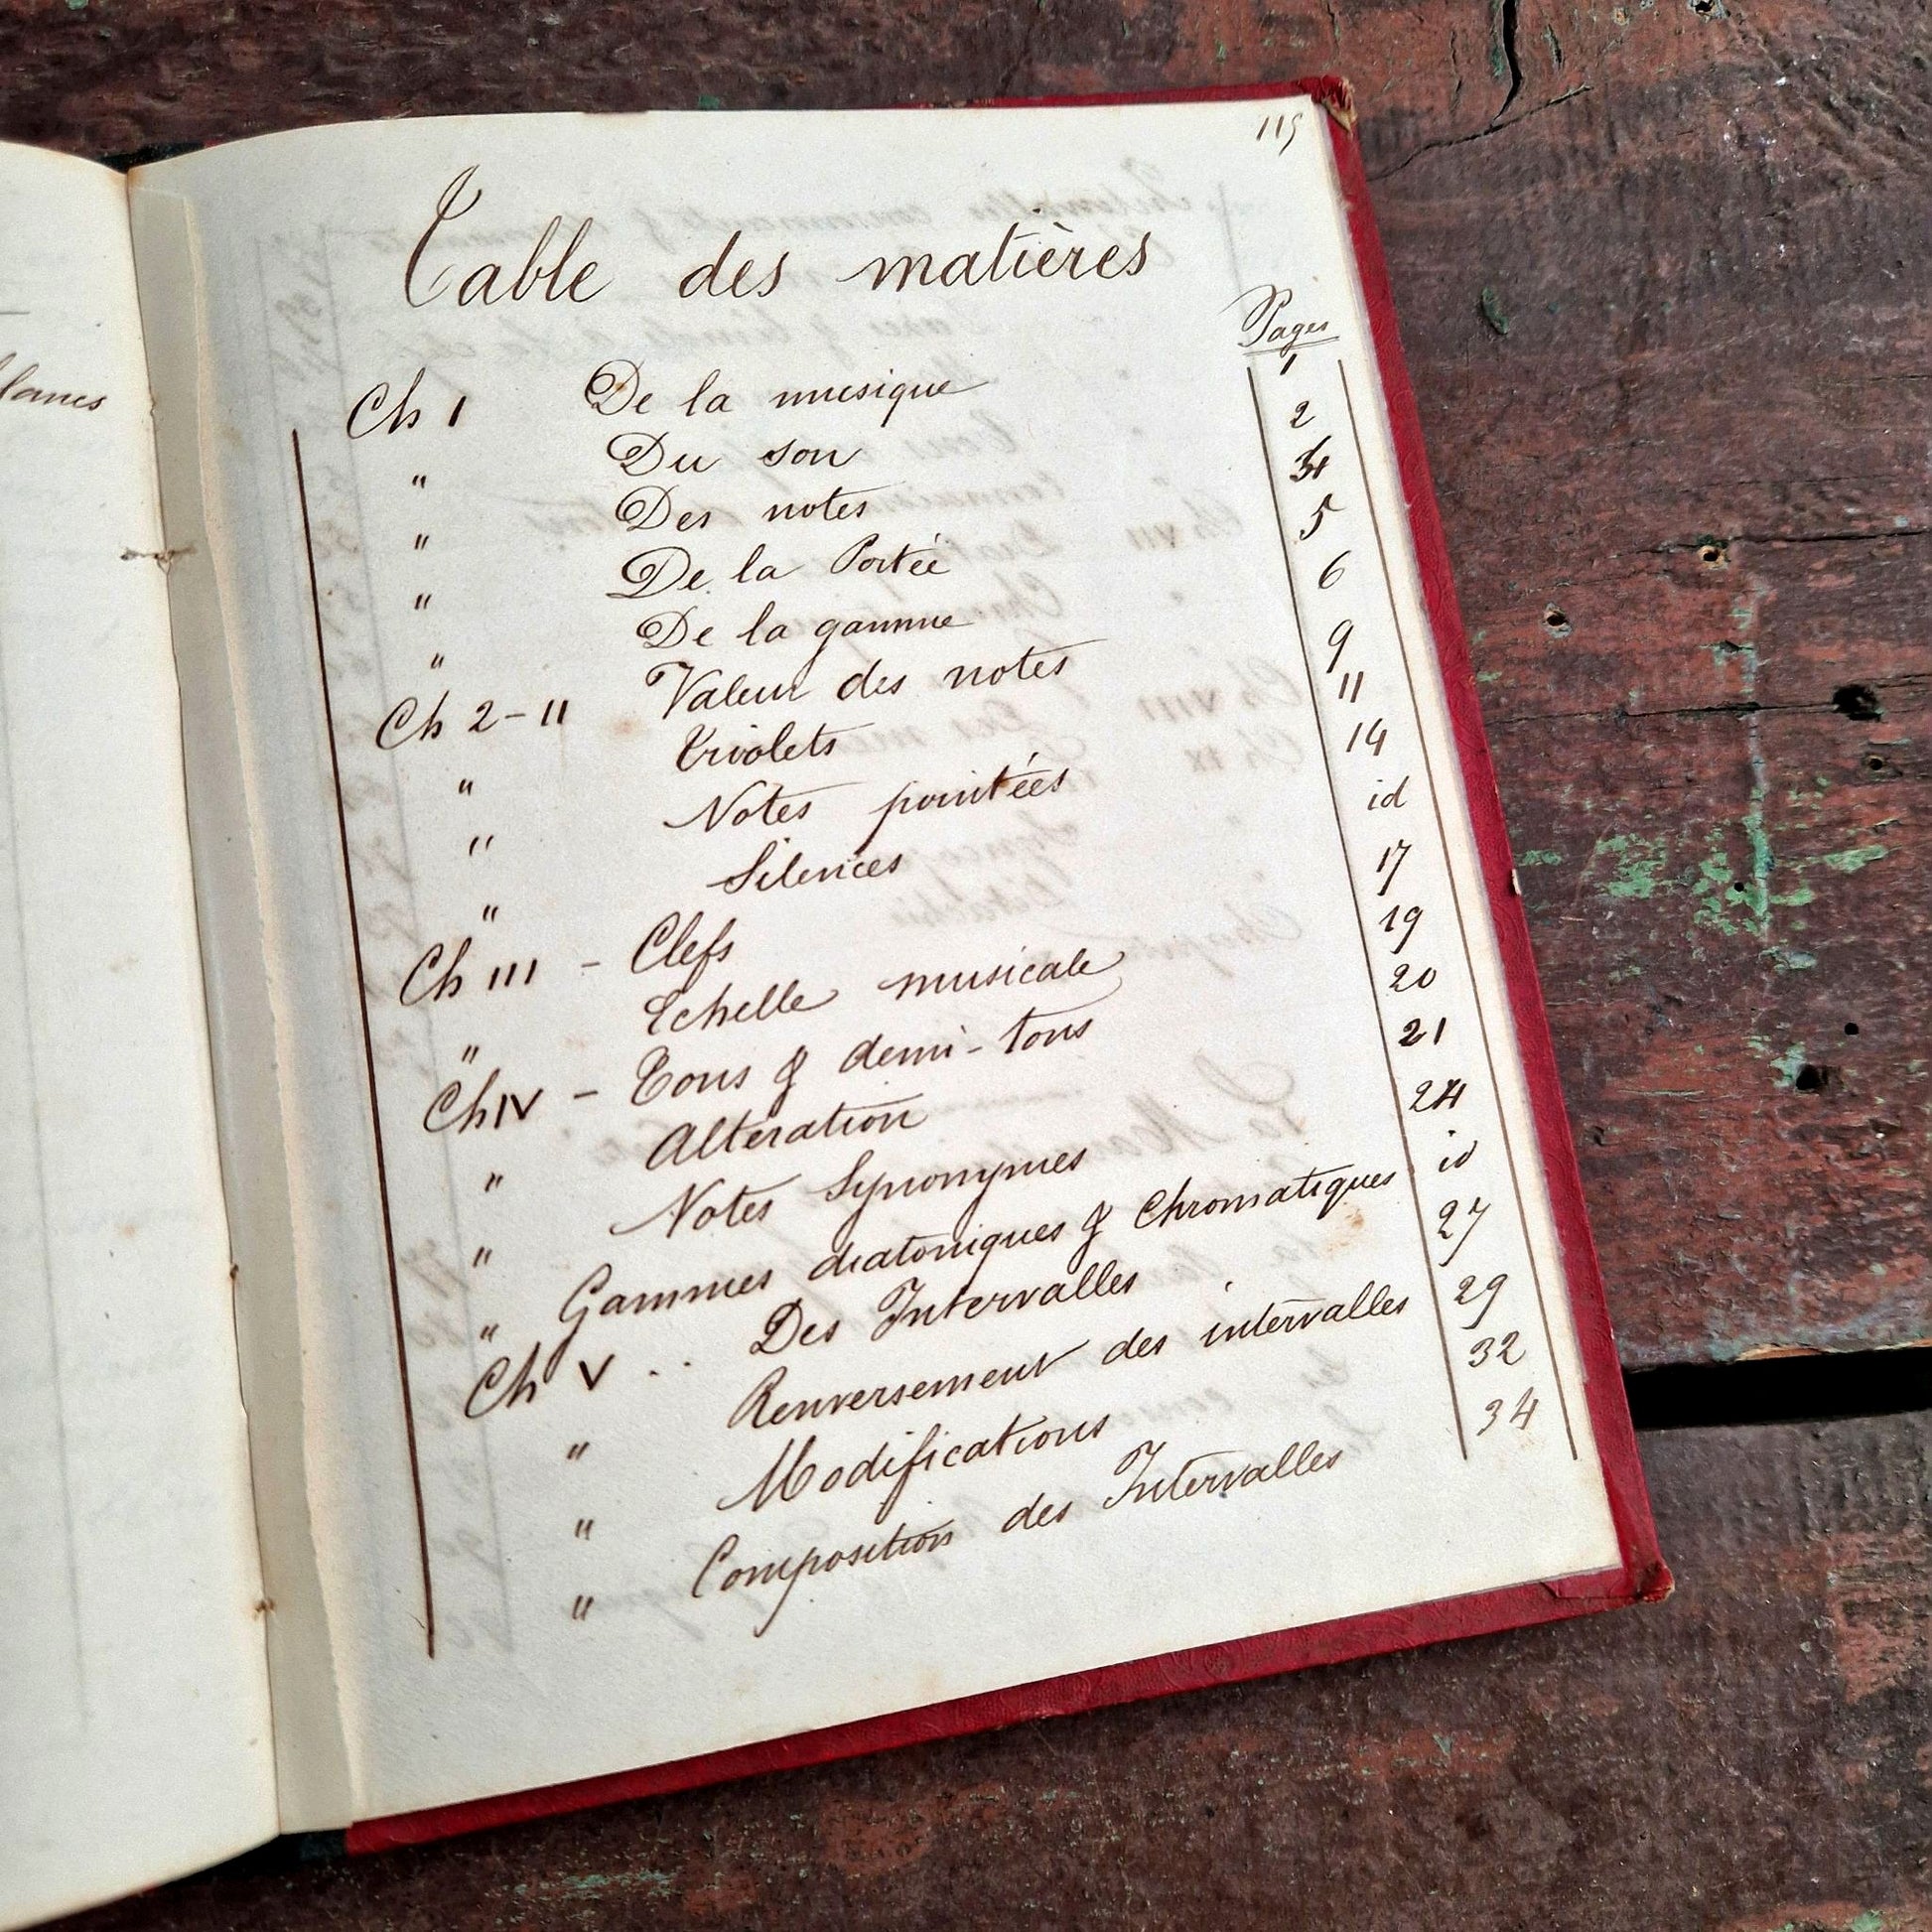 115
Table des matières
Pages
Ch I De la musique 1
" Du son 2
" Des notes 4
" De la Portée 5
" De la gamme 6
Ch 2-II Valeur des notes 9
" Triolets 11
" Notes pointées 14
" Silences id
Ch III - Clefs 17
" Echelle musicale 19
Ch IV - Tons & demi-tons 20
" Altération 21
" Notes Synonymes 24
" Gammes diatoniques & Chromatiques id
Ch V .. Des Intervalles 27
" Renversement des intervalles 29
" Modifications 32
" Composition des Intervalles 34